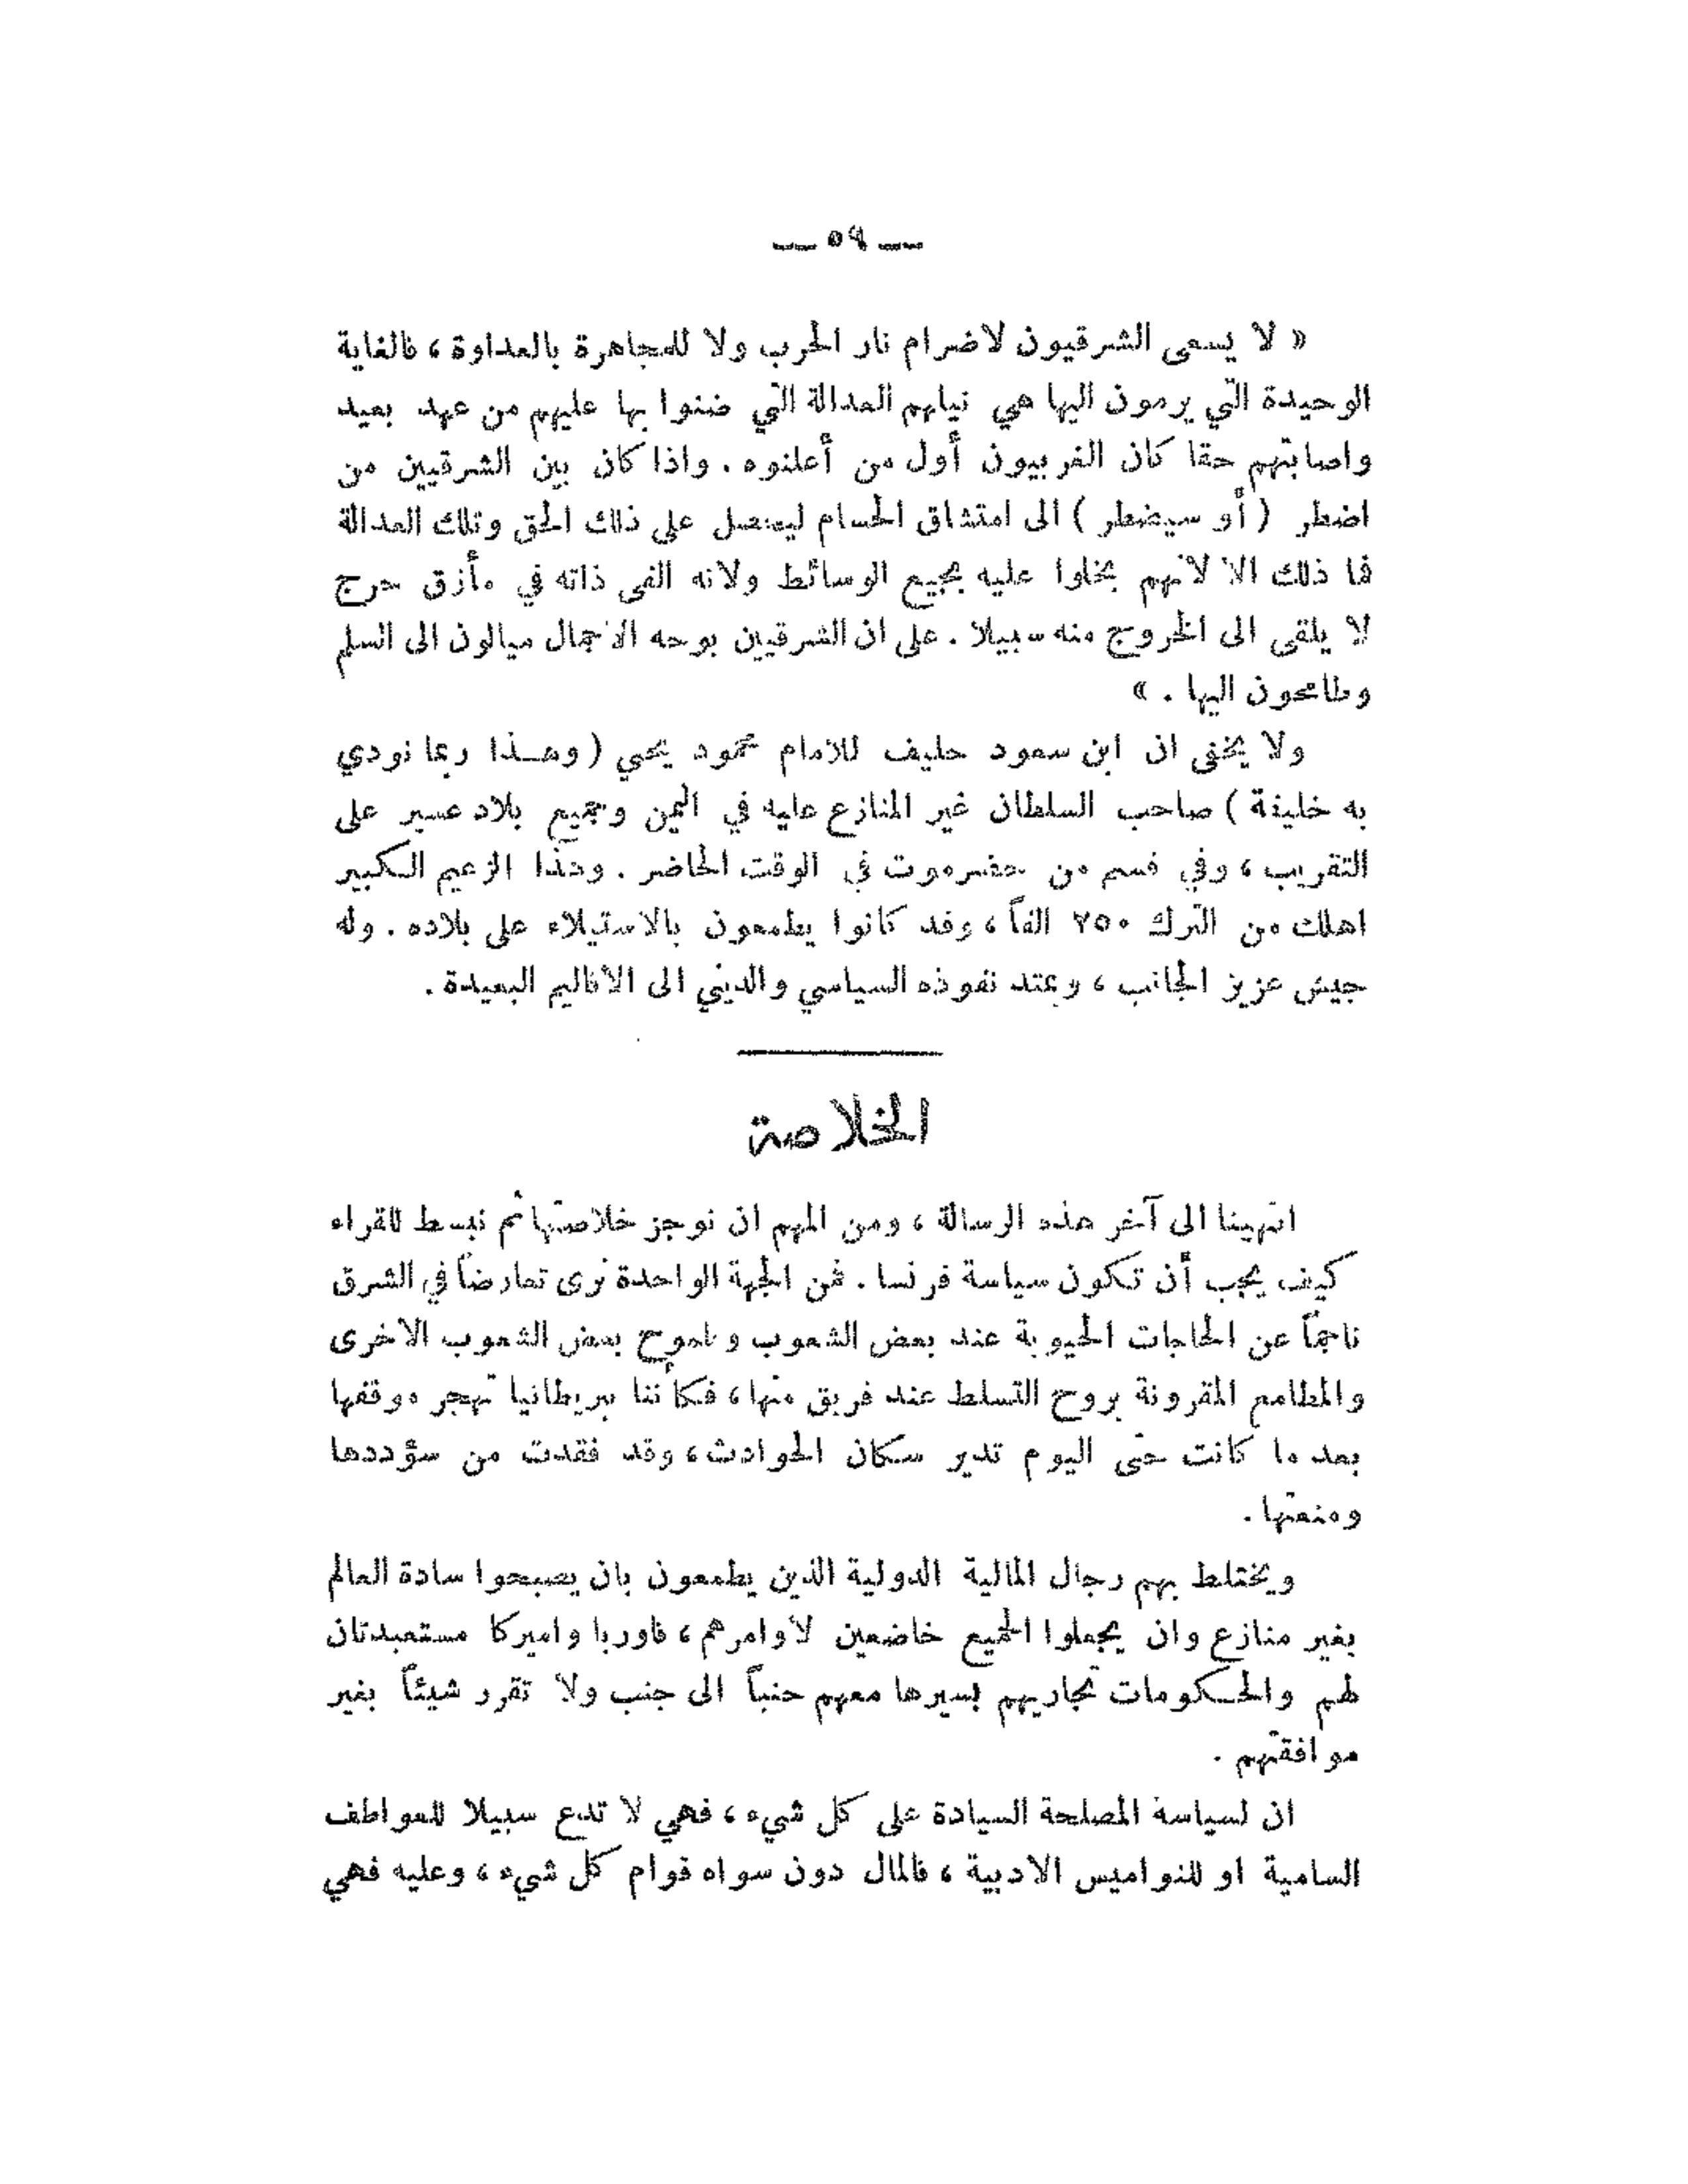 — ٥٩ —
« لا يسعى الشرقيون لاضرام نار الحرب ولا للمجاهرة بالعداوة ، فالغاية
الوحيدة التي يرمون اليها هي نيلهم العدالة التي ضنوا بها عليهم من عهد بعيد
واصابتهم حقا كان الغربيون أول من أعلنوه . واذا كان بين الشرقيين من
اضطر ( أو سيضطر ) الى امتشاق الحسام ليحصل على ذلك الحق وتلك العدالة
فما ذلك الا لانهم بخلوا عليه بجميع الوسائط ولانه الفى ذاته في مأزق حرج
لا يلقى الى الخروج منه سبيلا . على ان الشرقيين بوجه الاجمال ميالون الى السلم
وطامحون اليها . »
ولا يخفى ان ابن سعود حليف للامام محمود يحيي ( وهـذا ربما نودي
به خليفة ) صاحب السلطان غير المنازع عليه في اليمن وبجميع بلاد عسير على
التقريب ، وفي قسم من حضرموت في الوقت الحاضر . وهذا الزعيم الكبير
اهلك من الترك ٧٥٠ الفاً ، وقد كانوا يطمعون بالاستيلاء على بلاده . وله
جيش عزيز الجانب ، ويمتد نفوذه السياسي والديني الى الأقاليم البعيدة .
الخلاصة
انتهينا الى آخر هذه الرسالة ، ومن المهم ان نوجز خلاصتها ثم نبسط للقراء
كيف يجب أن تكون سياسة فرنسا . فمن الجهة الواحدة نرى تعارضاً في الشرق
ناجماً عن الحاجات الحيوية عند بعض الشعوب وطموح بعض الشعوب الاخرى
والمطامع المقرونة بروح التسلط عند فريق منها ، فكأننا ببريطانيا تهجر موقفها
بعد ما كانت حتى اليوم تدير سكان الحوادث ، وقد فقدت من سؤددها
ومنعتها .
ويختلط بهم رجال المالية الدولية الذين يطمعون بان يصبحوا سادة العالم
بغير منازع وان يجعلوا الجميع خاضعين لأوامرهم ، فاوربا واميركا مستعبدتان
لهم والحـكومات تجاريهم بسيرها معهم جنباً الى جنب ولا تقرر شيئاً بغير
موافقتهم .
ان لسياسة المصلحة السيادة على كل شيء ، فهي لا تدع سبيلا للعواطف
السامية او للنواميس الادبية ، فالمال دون سواه قوام كل شيء ، وعليه فهي